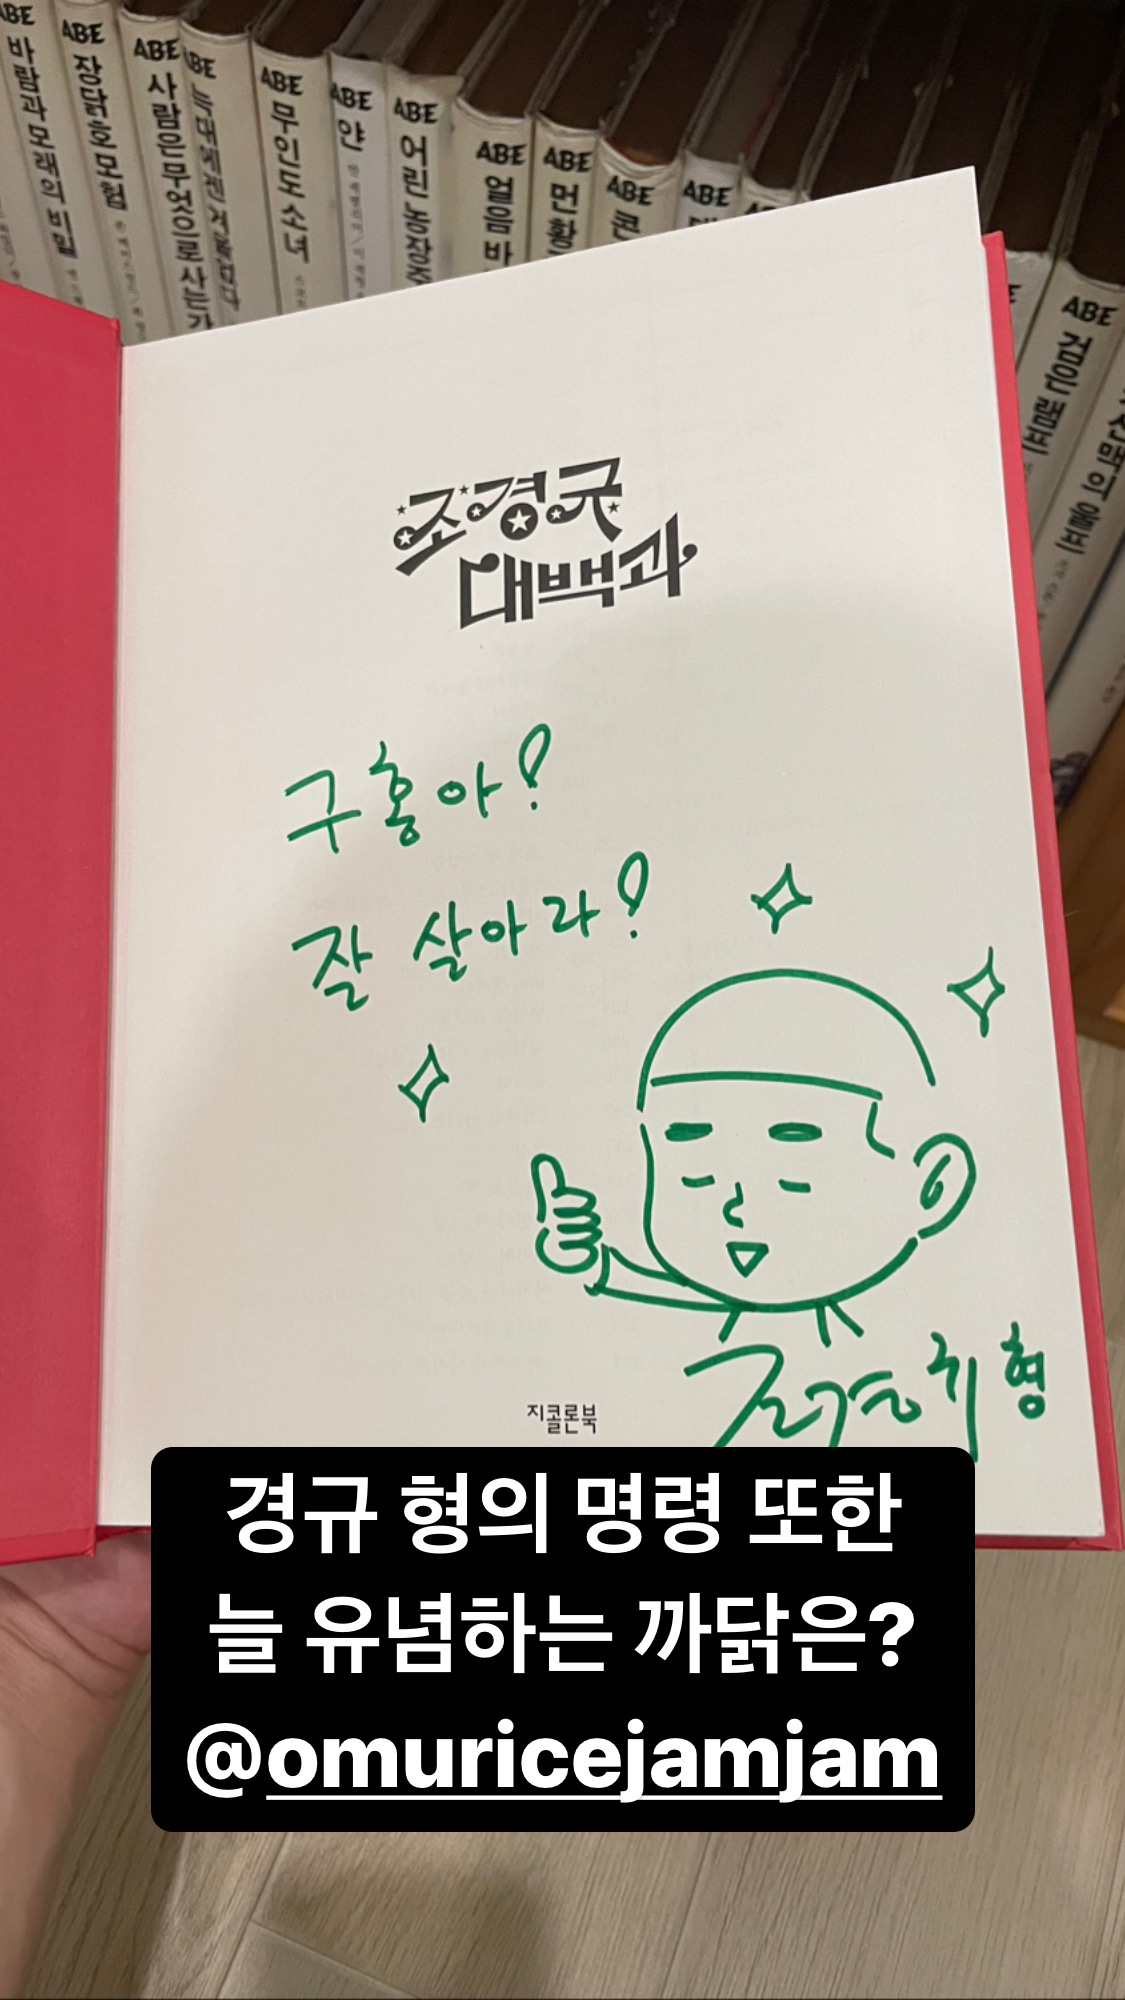 ABE 바람과 모래의 비밀
ABE 장닭호 모험
ABE 사람은 무엇으로 사는가
ABE
ABE 무인도 소녀
ABE 얀
ABE 어린 농장주
ABE 얼음 바
ABE 먼 황
ABE 콘
ABE
ABE
ABE 검은 램프
산맥의 울프
조경규
대백과
구홍아!
잘 살아라!
조경규 형
지콜론북
경규 형의 명령 또한
늘 유념하는 까닭은?
@omuricejamjam